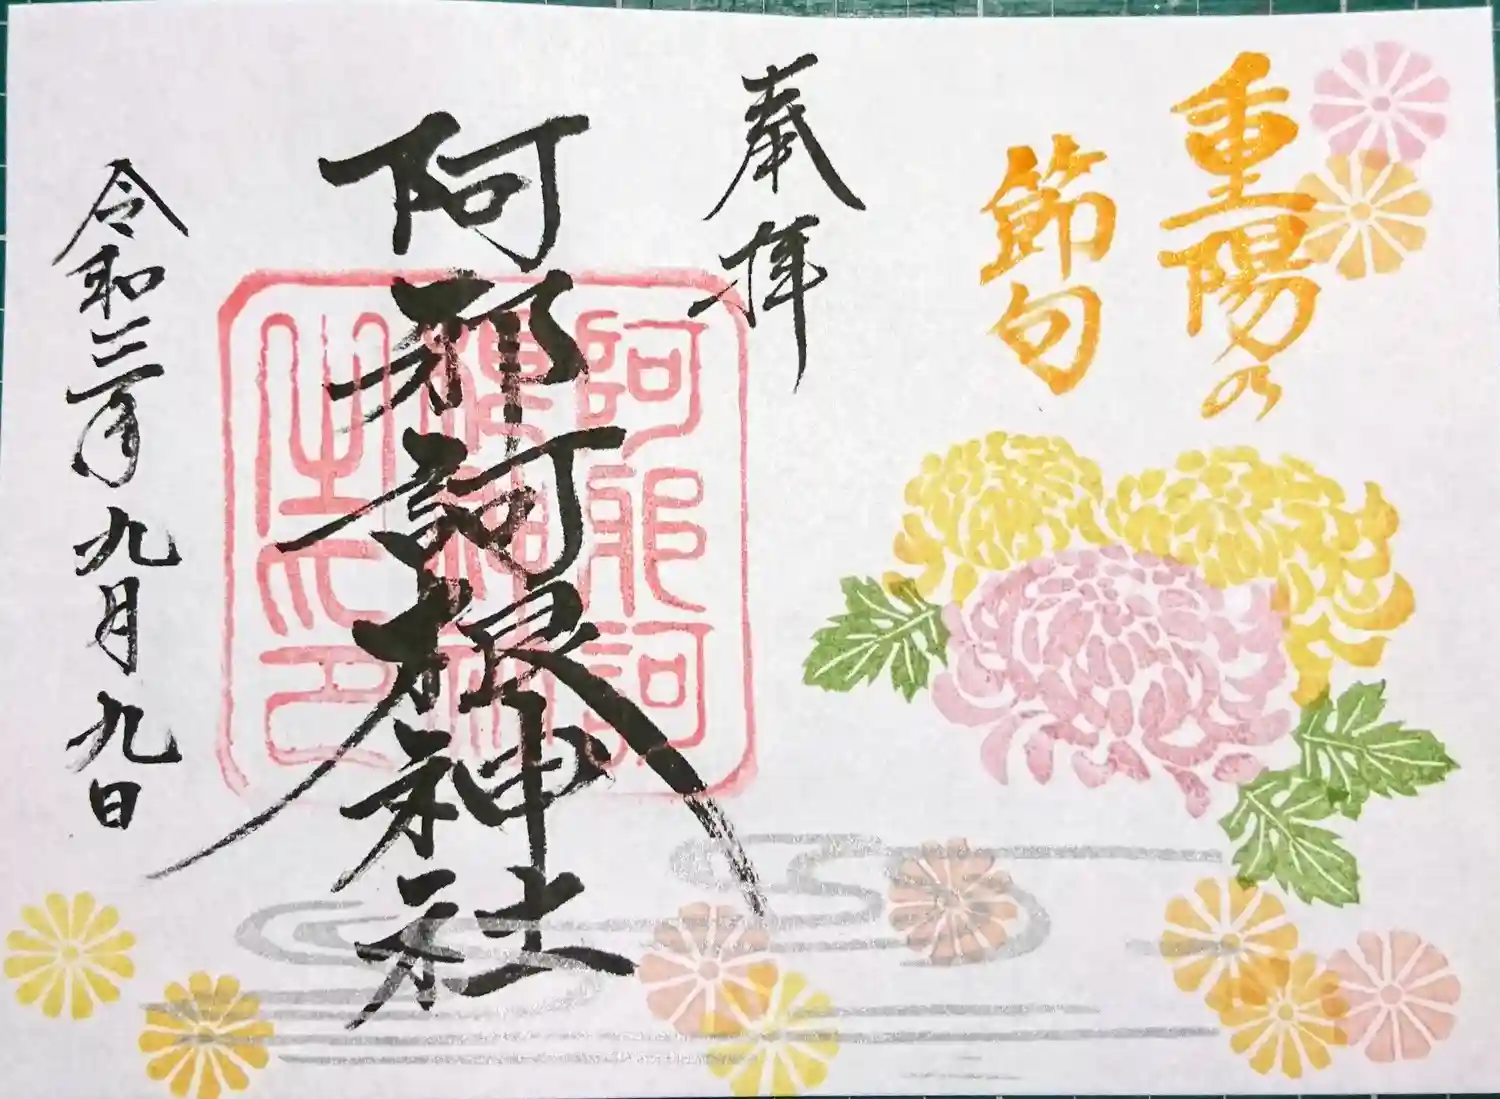 重陽の
節句
奉拝
阿邪訶根神社
阿邪訶
根神社
之印
令和三年九月九日